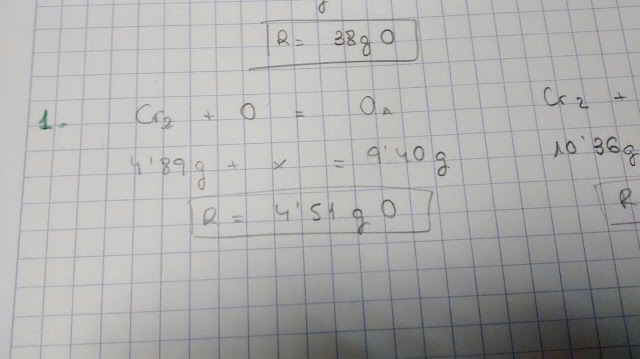 R = 38 g O
1. Cr2 + O = O
4'89 g + x = 9'40 g
R = 4'51 g O
Cr2 +
10'36 g
R